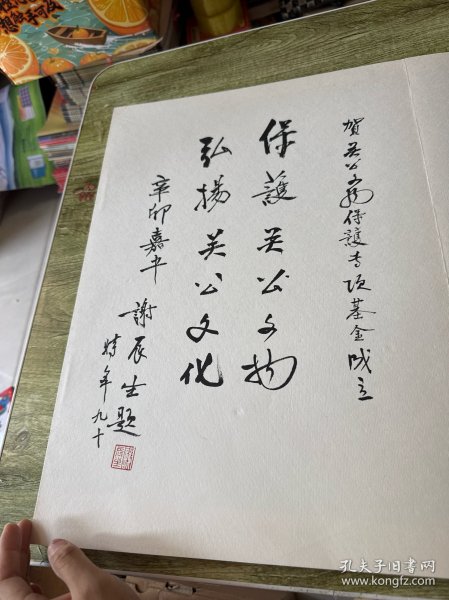 賀关公文物保護专项基金成立
保護关公文物
弘揚关公文化
辛卯嘉平 謝辰生題
時年九十
孔夫子旧书网
www.kongfz.com